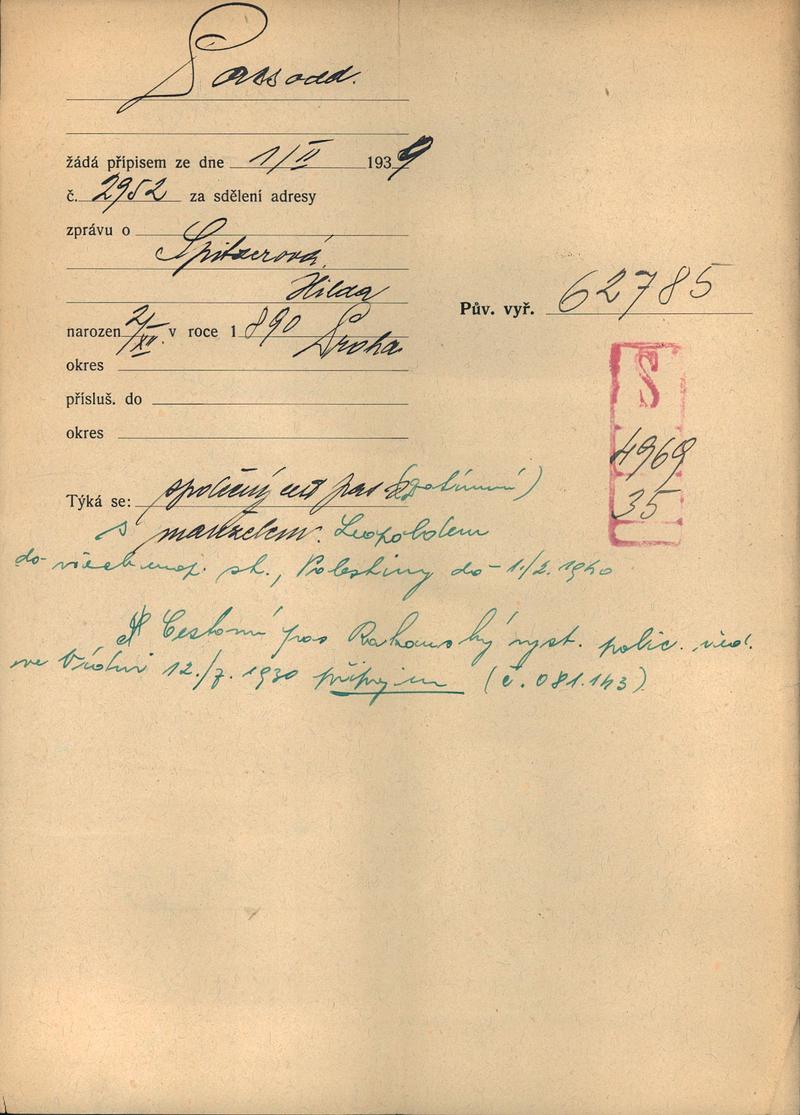 Passodd.
žádá přípisem ze dne 1/II 1939
č. 2952 za sdělení adresy
zprávu o
Spitzerová
Hilda
Pův. vyř. 62785
narozen 2/XII. v roce 1890
Praha
okres
přísluš. do
okres
S
4969
35
Týká se: společný cest pas
s manželem. Leopoldem
do všech st., Palestiny do 1./2. 1940
Cestovní pas Rakouský vyst. polic.
ve Vídni 12./7. 1930 připojen (č. 081.143)